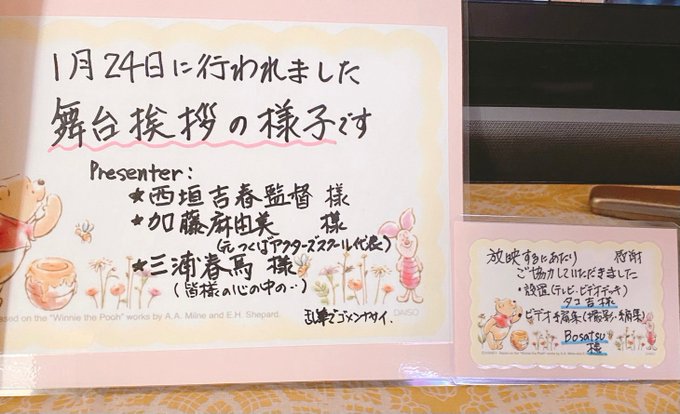 1月24日に行われました
舞台挨拶の様子です
Presenter:
★西垣吉春監督 様
★加藤麻由美 様
(元つくばアクターズスクール代表)
★三浦春馬 様
(皆様の心の中の‥)
乱筆でゴメンナサイ.
Based on the "Winnie the Pooh" works by A.A. Milne and E.H. Shepard.
DAISO
放映するにあたり 感謝
ご協力していただきました
・設置(テレビ・ビデオデッキ)
タコ吉様
ビデオ編集(撮影・編集)
Bosatsu
様